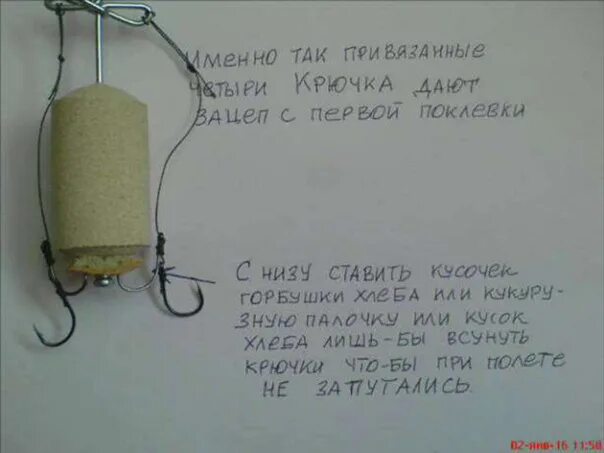 Именно так привязанные
четыри крючка дают
зацеп с первой поклевки
С низу ставить кусочек
горбушки хлеба или кукуру-
зную палочку или кусок
хлеба лишь-бы всунуть
крючки что-бы при полете
не запутались.
02-янв-16 11:50